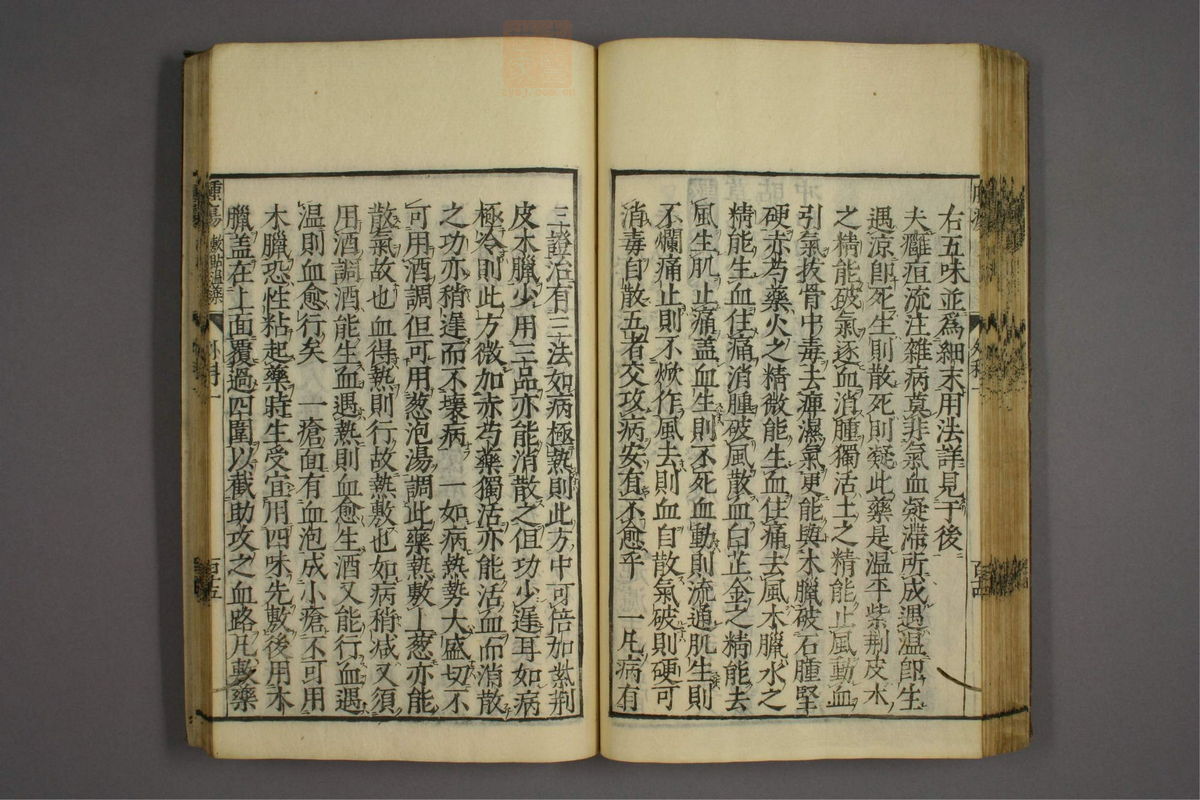 右五味並爲細末用法詳見于後
夫癰疽流注雜病莫非氣血凝滯所成遇温即生
遇涼即死生則散死則凝此藥是温平紫荆皮木
之精能破氣逐血消腫獨活土之精能止風動血
引氣拔骨中毒去痺濕氣更能與木臘破石腫堅
硬赤芍藥火之精微能生血住痛去風木臘水之
精能生血住痛消腫破風散血白芷金之精能去
風生肌止痛蓋血生則不死血動則流通肌生則
不爛痛止則不焮作風去則血自散氣破則硬可
消毒自散五者交攻病安有不愈乎 一凡病有
三證治有三法如病極熱則此方中可倍加紫荆
皮木臘少用三品亦能消散之但功少遲耳如病
極冷則此方微加赤芍藥獨活亦能活血而消散
之功亦稍遲而不壞病 一如病熱勢大盛切不
可用酒調但可用葱泡湯調此藥熱敷上葱亦能
散氣故也血得熱則行故熱敷也如病稍减又須
用酒調酒能生血遇熱則血愈生酒又能行血遇
温則血愈行矣 一瘡面有血泡成小瘡不可用
木臘恐性粘起藥時生受宜用四味先敷後用木
臘盖在上面覆過四圍以截助攻之血路凡敷藥
腫瘍 敷貼温藥 外科一 百十五
外科一 百十四